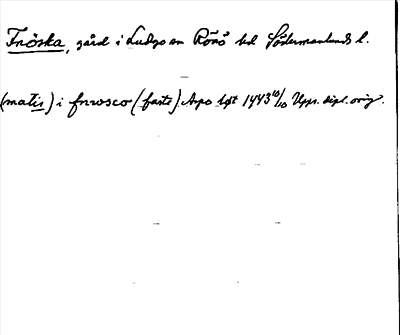 Fröska, gård i Ludgo sn Rönö hd Södermanlands l.
(matis) i fnrosco (faste). Aspo 1443 10/10 Upps. dipl. orig.